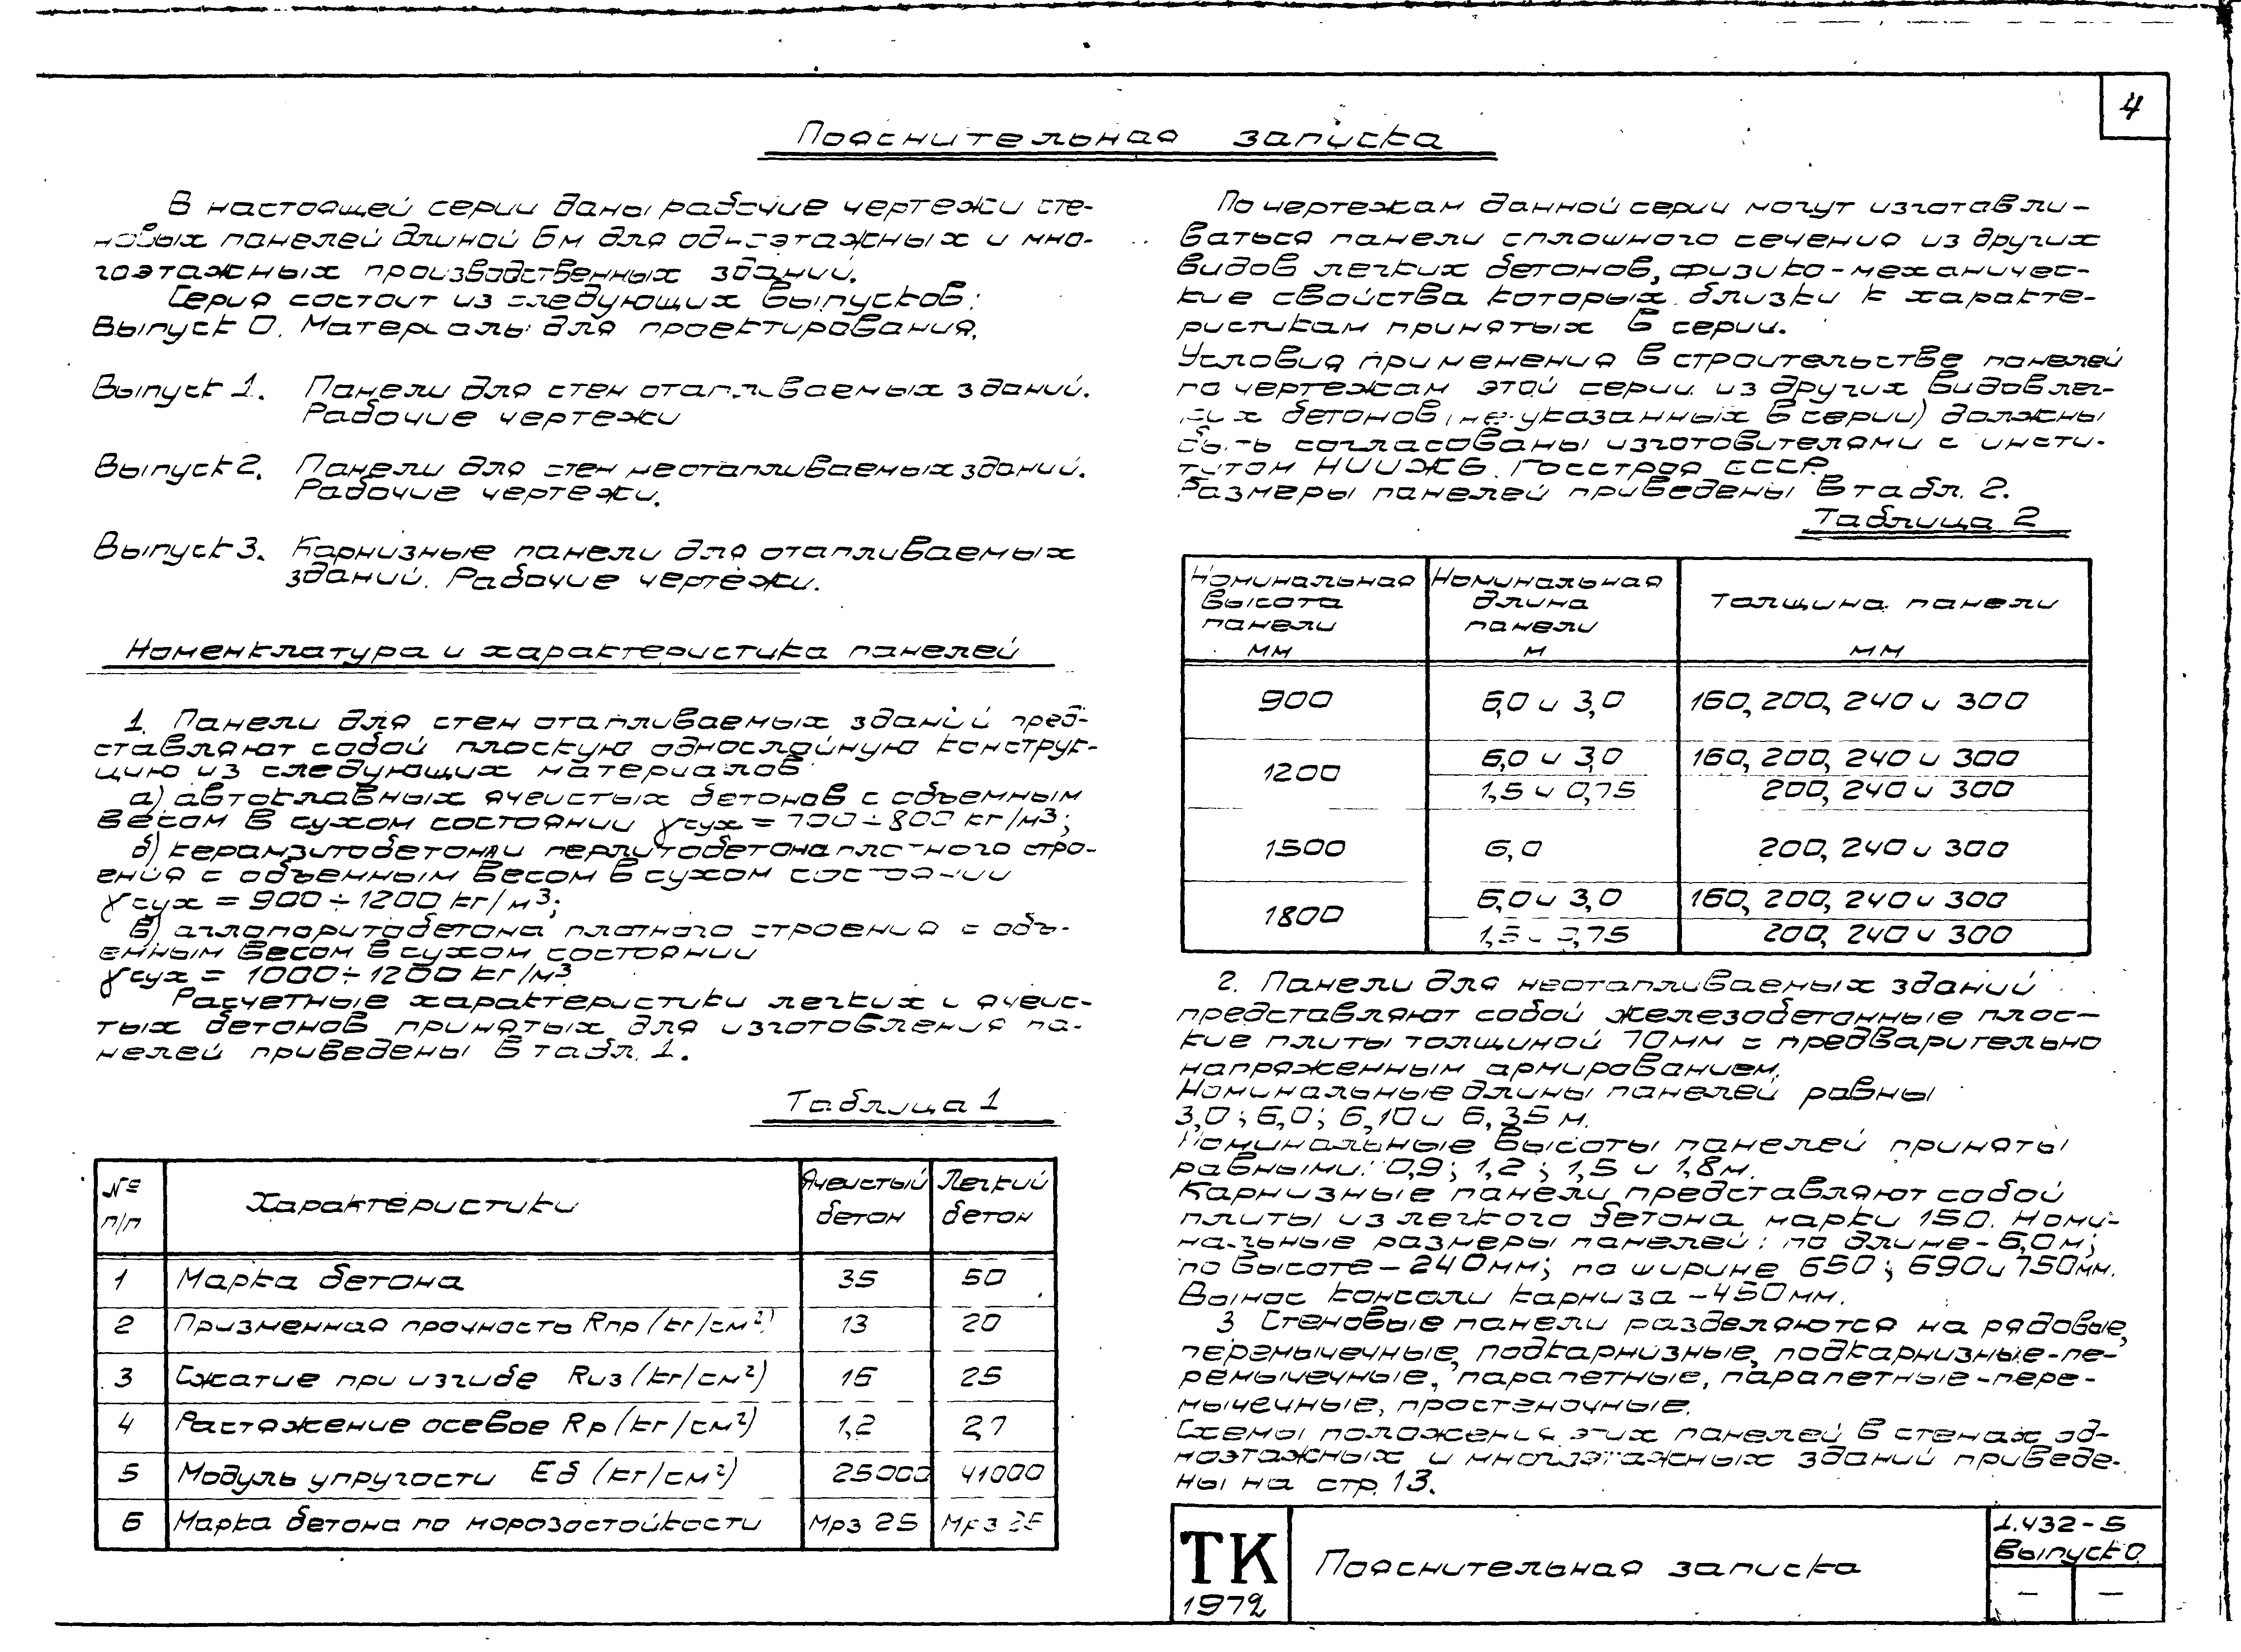 4
Пояснительная записка
В настоящей серии даны рабочие чертежи сте-
новых панелей длиной 6м для одноэтажных и мно-
гоэтажных производственных зданий.
Серия состоит из следующих выпусков:
Выпуск 0. Материалы для проектирования.
Выпуск 1. Панели для стен отапливаемых зданий.
Рабочие чертежи
Выпуск 2. Панели для стен неотапливаемых зданий.
Рабочие чертежи.
Выпуск 3. Карнизные панели для отапливаемых
зданий. Рабочие чертежи.
Номенклатура и характеристика панелей
1. Панели для стен отапливаемых зданий пред-
ставляют собой плоскую однослойную конструк-
цию из следующих материалов
а) автоклавных ячеистых бетонов с объемным
весом в сухом состоянии γсух = 700÷800 кг/м³;
б) керамзитобетона и перлитобетона плотного стро-
ения с объемным весом в сухом состоянии
γсух = 900÷1200 кг/м³;
в) аглопоритобетона плотного строения с объ-
емным весом в сухом состоянии
γсух = 1000÷1200 кг/м³.
Расчетные характеристики легких и ячеис-
тых бетонов принятых для изготовления па-
нелей приведены в табл. 1.
Таблица 1
№ п/п Характеристики Ячеистый бетон Легкий бетон
1 Марка бетона 35 50
2 Призменная прочность Rпр (кг/см²) 13 20
3 Сжатие при изгибе Rиз (кг/см²) 16 25
4 Растяжение осевое Rр (кг/см²) 1,2 2,7
5 Модуль упругости Eб (кг/см²) 25000 41000
6 Марка бетона по морозостойкости Мрз 25 Мрз 25
По чертежам данной серии могут изготавли-
ваться панели сплошного сечения из других
видов легких бетонов, физико-механичес-
кие свойства которых близки к характе-
ристикам принятых в серии.
Условия применения в строительстве панелей
по чертежам этой серии из других видов лег-
ких бетонов (не указанных в серии) должны
быть согласованы изготовителями с инсти-
тутом НИИЖБ Госстроя СССР.
Размеры панелей приведены в табл. 2.
Таблица 2
Номинальная высота панели мм Номинальная длина панели м Толщина панели мм
900 6,0 и 3,0 160, 200, 240 и 300
1200 6,0 и 3,0 160, 200, 240 и 300
1,5 и 0,75 200, 240 и 300
1500 6,0 200, 240 и 300
1800 6,0 и 3,0 160, 200, 240 и 300
1,5 и 0,75 200, 240 и 300
2. Панели для неотапливаемых зданий
представляют собой железобетонные плос-
кие плиты толщиной 70мм с предварительно
напряженным армированием.
Номинальные длины панелей равны
3,0; 6,0; 6,10 и 6,35 м.
Номинальные высоты панелей приняты
равными: 0,9; 1,2; 1,5 и 1,8м.
Карнизные панели представляют собой
плиты из легкого бетона марки 150. Номи-
нальные размеры панелей: по длине - 6,0м;
по высоте - 240мм; по ширине 650; 690 и 750мм.
Вынос консоли карниза - 450мм.
3 Стеновые панели разделяются на рядовые,
перемычечные, подкарнизные, подкарнизные-пе-
ремычечные, парапетные, парапетные-пере-
мычечные, простеночные.
Схемы положения этих панелей в стенах од-
ноэтажных и многоэтажных зданий приведе-
ны на стр. 13.
ТК
1972
Пояснительная записка
1.432-5
Выпуск 0
— —